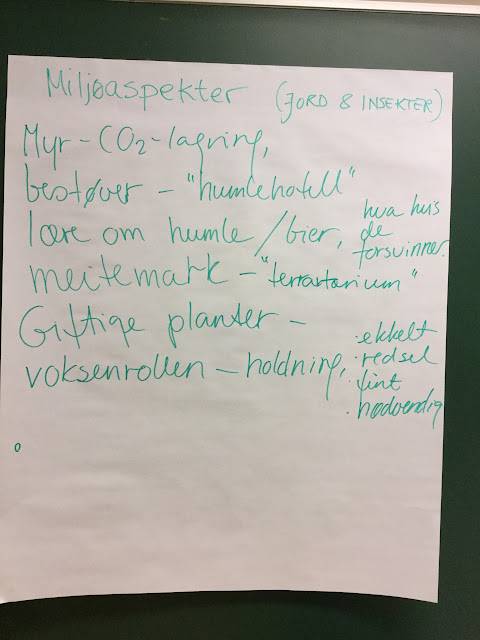 Miljøaspekter (JORD & INSEKTER)
Myr - CO2-lagring,
bestøver - "humlehotell"
lære om humle/bier, hva hvis de forsvinner.
meitemark - "terrartarium"
Giftige planter -
voksenrollen - holdning,
· ekkelt
· redsel
· fint
· nødvendig